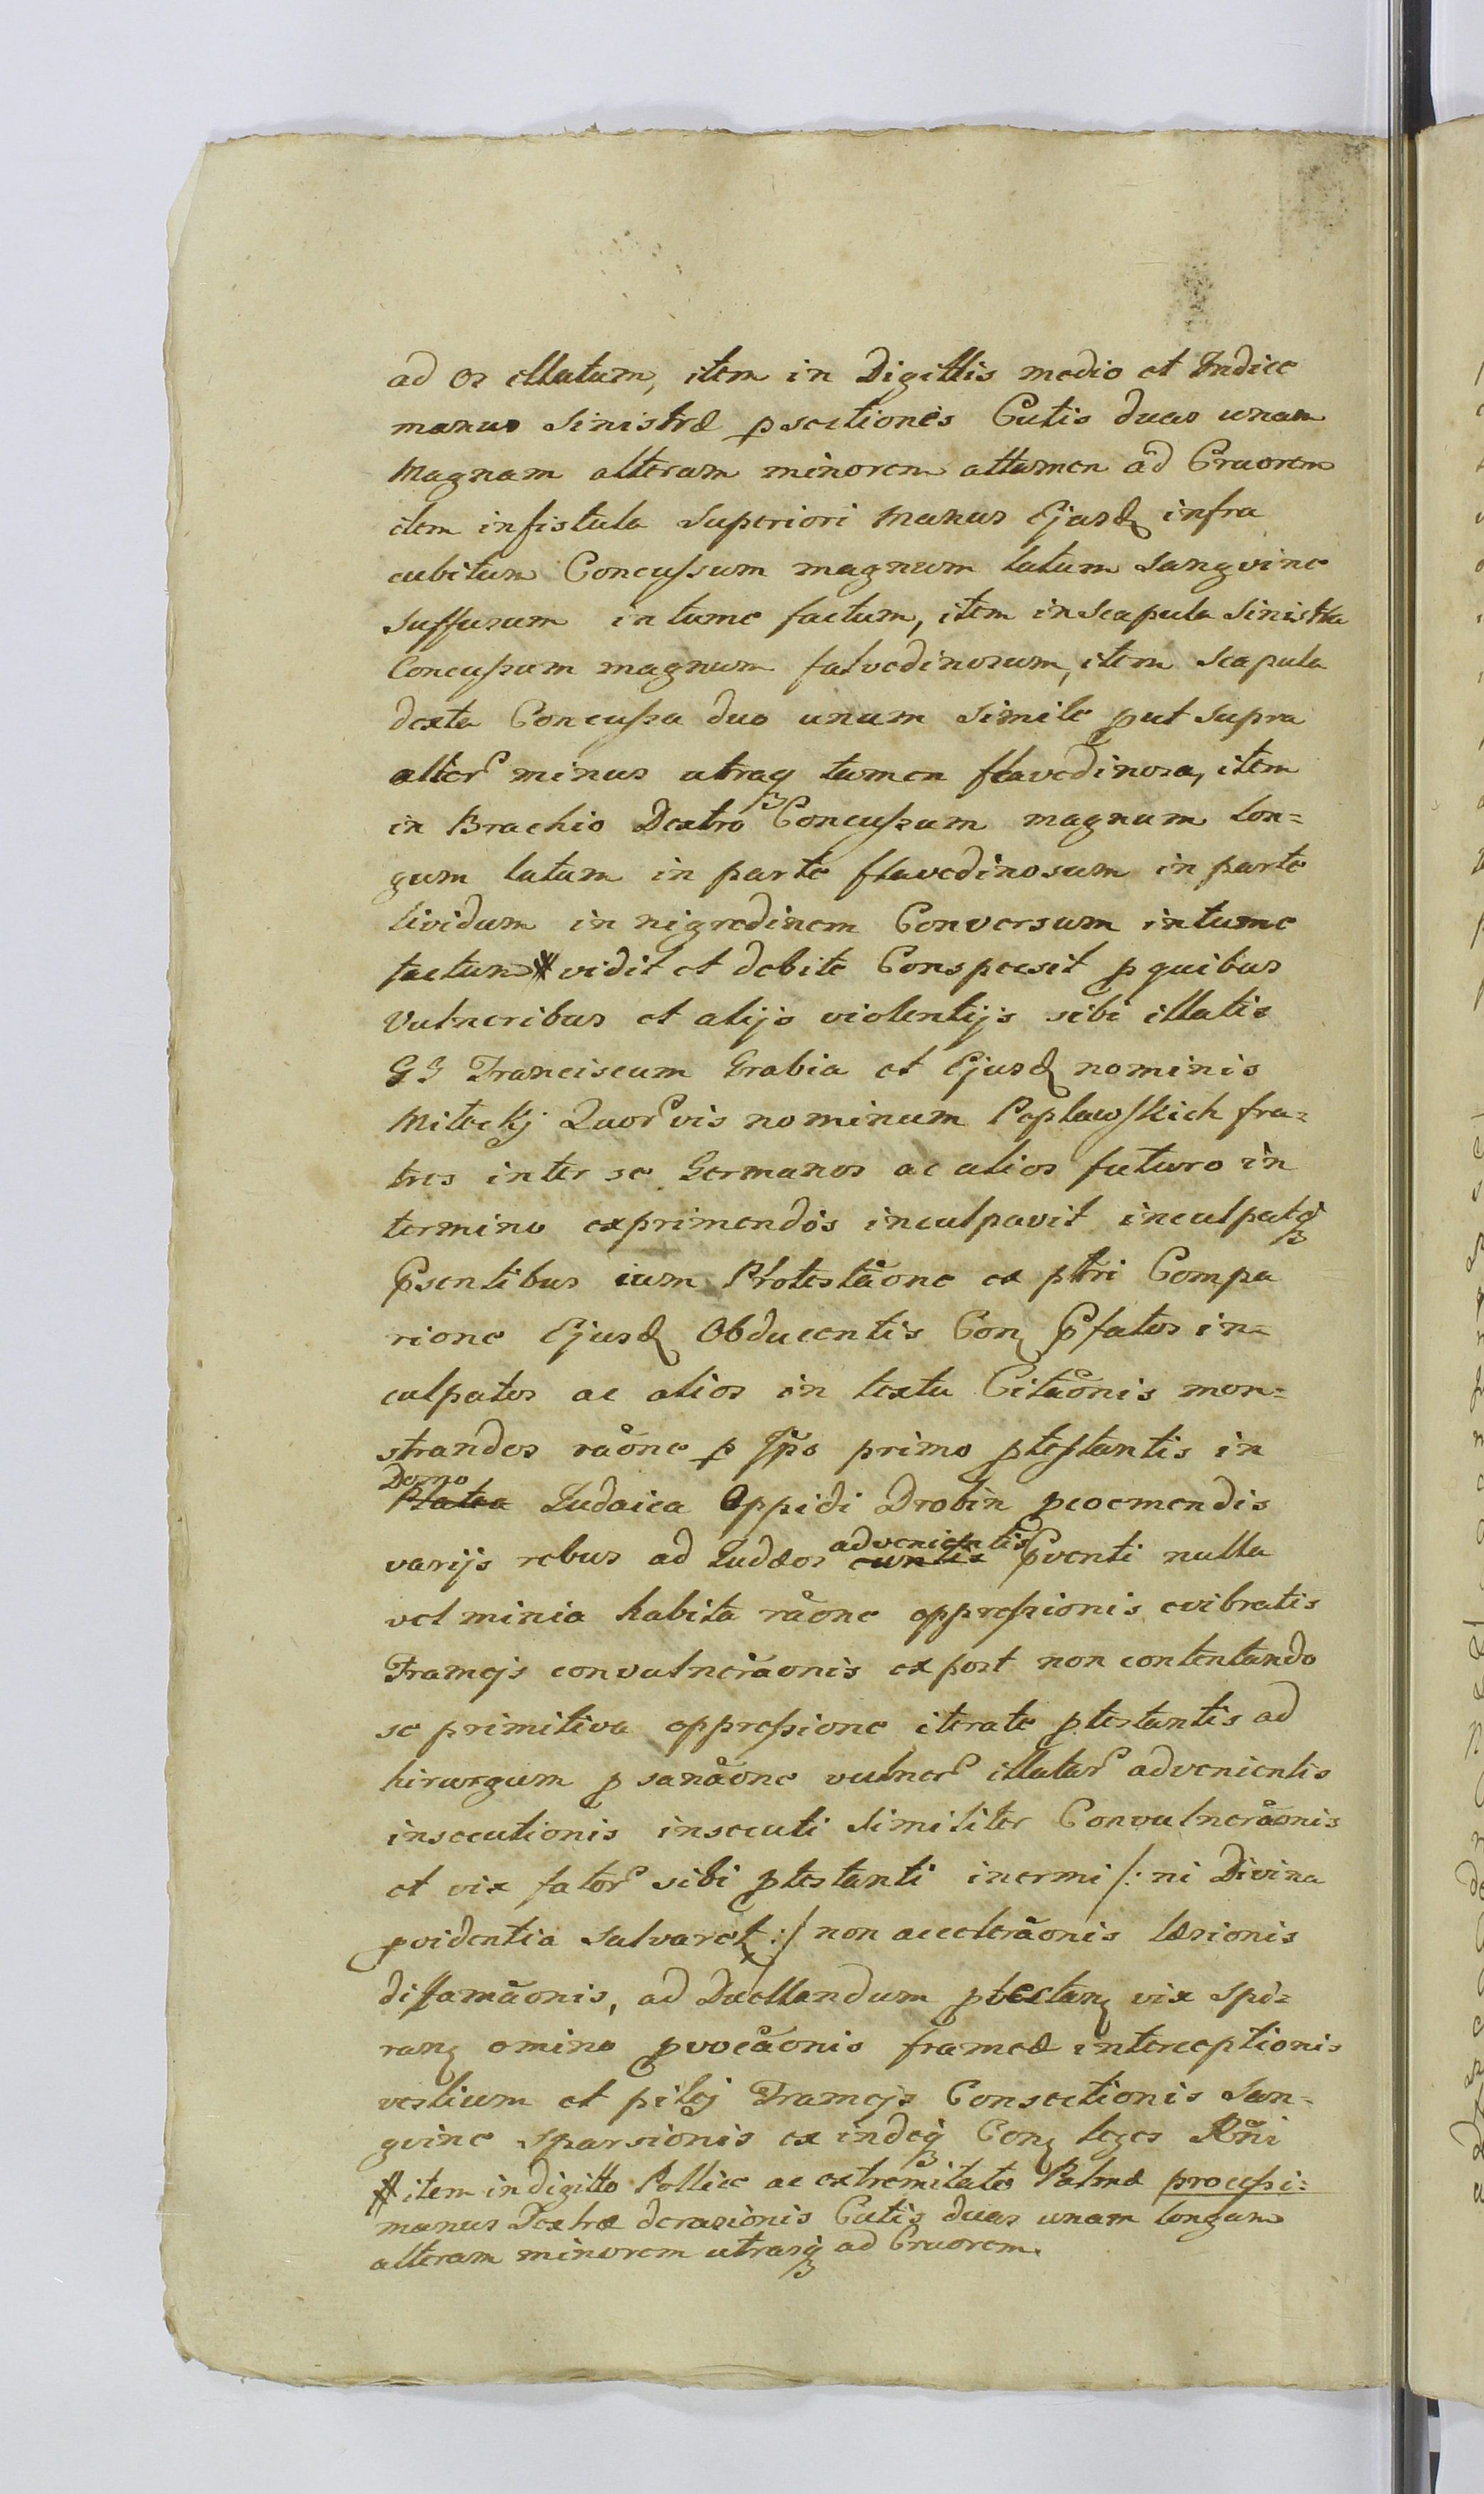 ad os illatum, item in Digittis medio et Indice
manus Sinistræ psectiones Cutis duas unam
Magnam alteram minorem attamen ad Cruorem
item in fistula Superiori Manus Ejusd infra
cubitum Concussum magnum latum Sangvine
suffusum in tume factum, item in Scapula Sinistra
Concussum magnum falvedinosum, item Scapula
dexta Concussa duo unum simile put supra
alter minus utraq tamen flavedinosa, item
in Brachio Dextro Concussum magnum lon=
gum latum in parte flavedinosum in parte
lividum in nigredinem Conversum intume
factum # vidit et debite Conspecsit p quibus
Vulneribus et alijs violentijs sibi illatis
GG Franciscum Grabia et Ejusd nominis
Mileckj Quorvis nominum Poplawskich fra=
tres inter se Germanos ac alios futuro in
termino exprimendos inculpavit inculpatq
Psentibus cum Protestãone ex ptri Compa
rione Ejusd Obducentis Con Pfatos in=
culpatos ac alios in textu Citãonis mon=
strandos rãone p Ipõ primo ptestantis in
Domo
Platea Judaica Oppidi Drobin pcoemendis
advenientis
varijs rebus ad Judæos euntis Pventi nulla
vel minia habita rãone oppressionis evibratis
Framejs convulnerãonis ex post non contentando
se primitiva oppressione iterate ptestantis ad
hirurgum p sanãone vulner illator advenientis
insecutionis insecuti Similiter Convulnerãonis
et vix fator sibi ptestanti inermi /: ni Divina
pvidentia salvaret :/ non accelerãonis læsionis
diffamãonis, ad Duellandum ptestan vix spi=
ran omino pvocãonis frameæ interceptionis
vestium et pilej Framejs Consectionis San=
gvine sparsionis exindeq Con leges Rñi
# item in digitto Pollice ac extremitate Palmæ processi=
manus Dextræ derasionis Cutis duas unam longam
alteram minorem utrasq ad Cruorem.